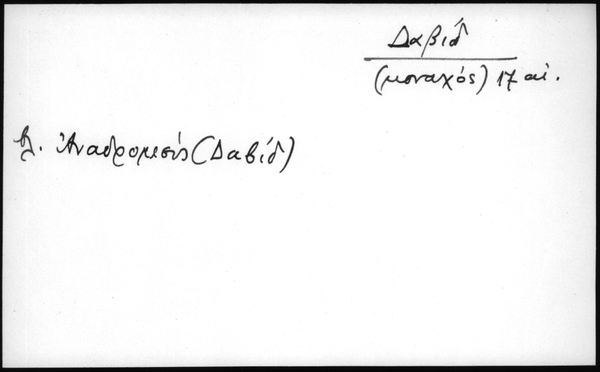 Δαβίδ
(μοναχός) 17 αἰ.
βλ. Ἀναδρομεσύς (Δαβίδ)